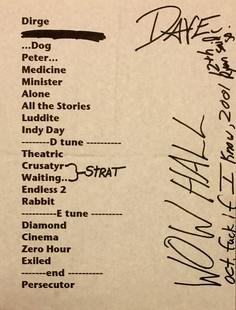 Dirge
...Dog
Peter...
Medicine
Minister
Alone
All the Stories
Luddite
Indy Day
-------D tune --------
Theatric
Crusatyr
Waiting...
STRAT
Endless 2
Rabbit
---------E tune --------
Diamond
Cinema
Zero Hour
Exiled
------end --------
Persecutor
DAVE
WOW HALL
Oct. Fuck if I know, 2001